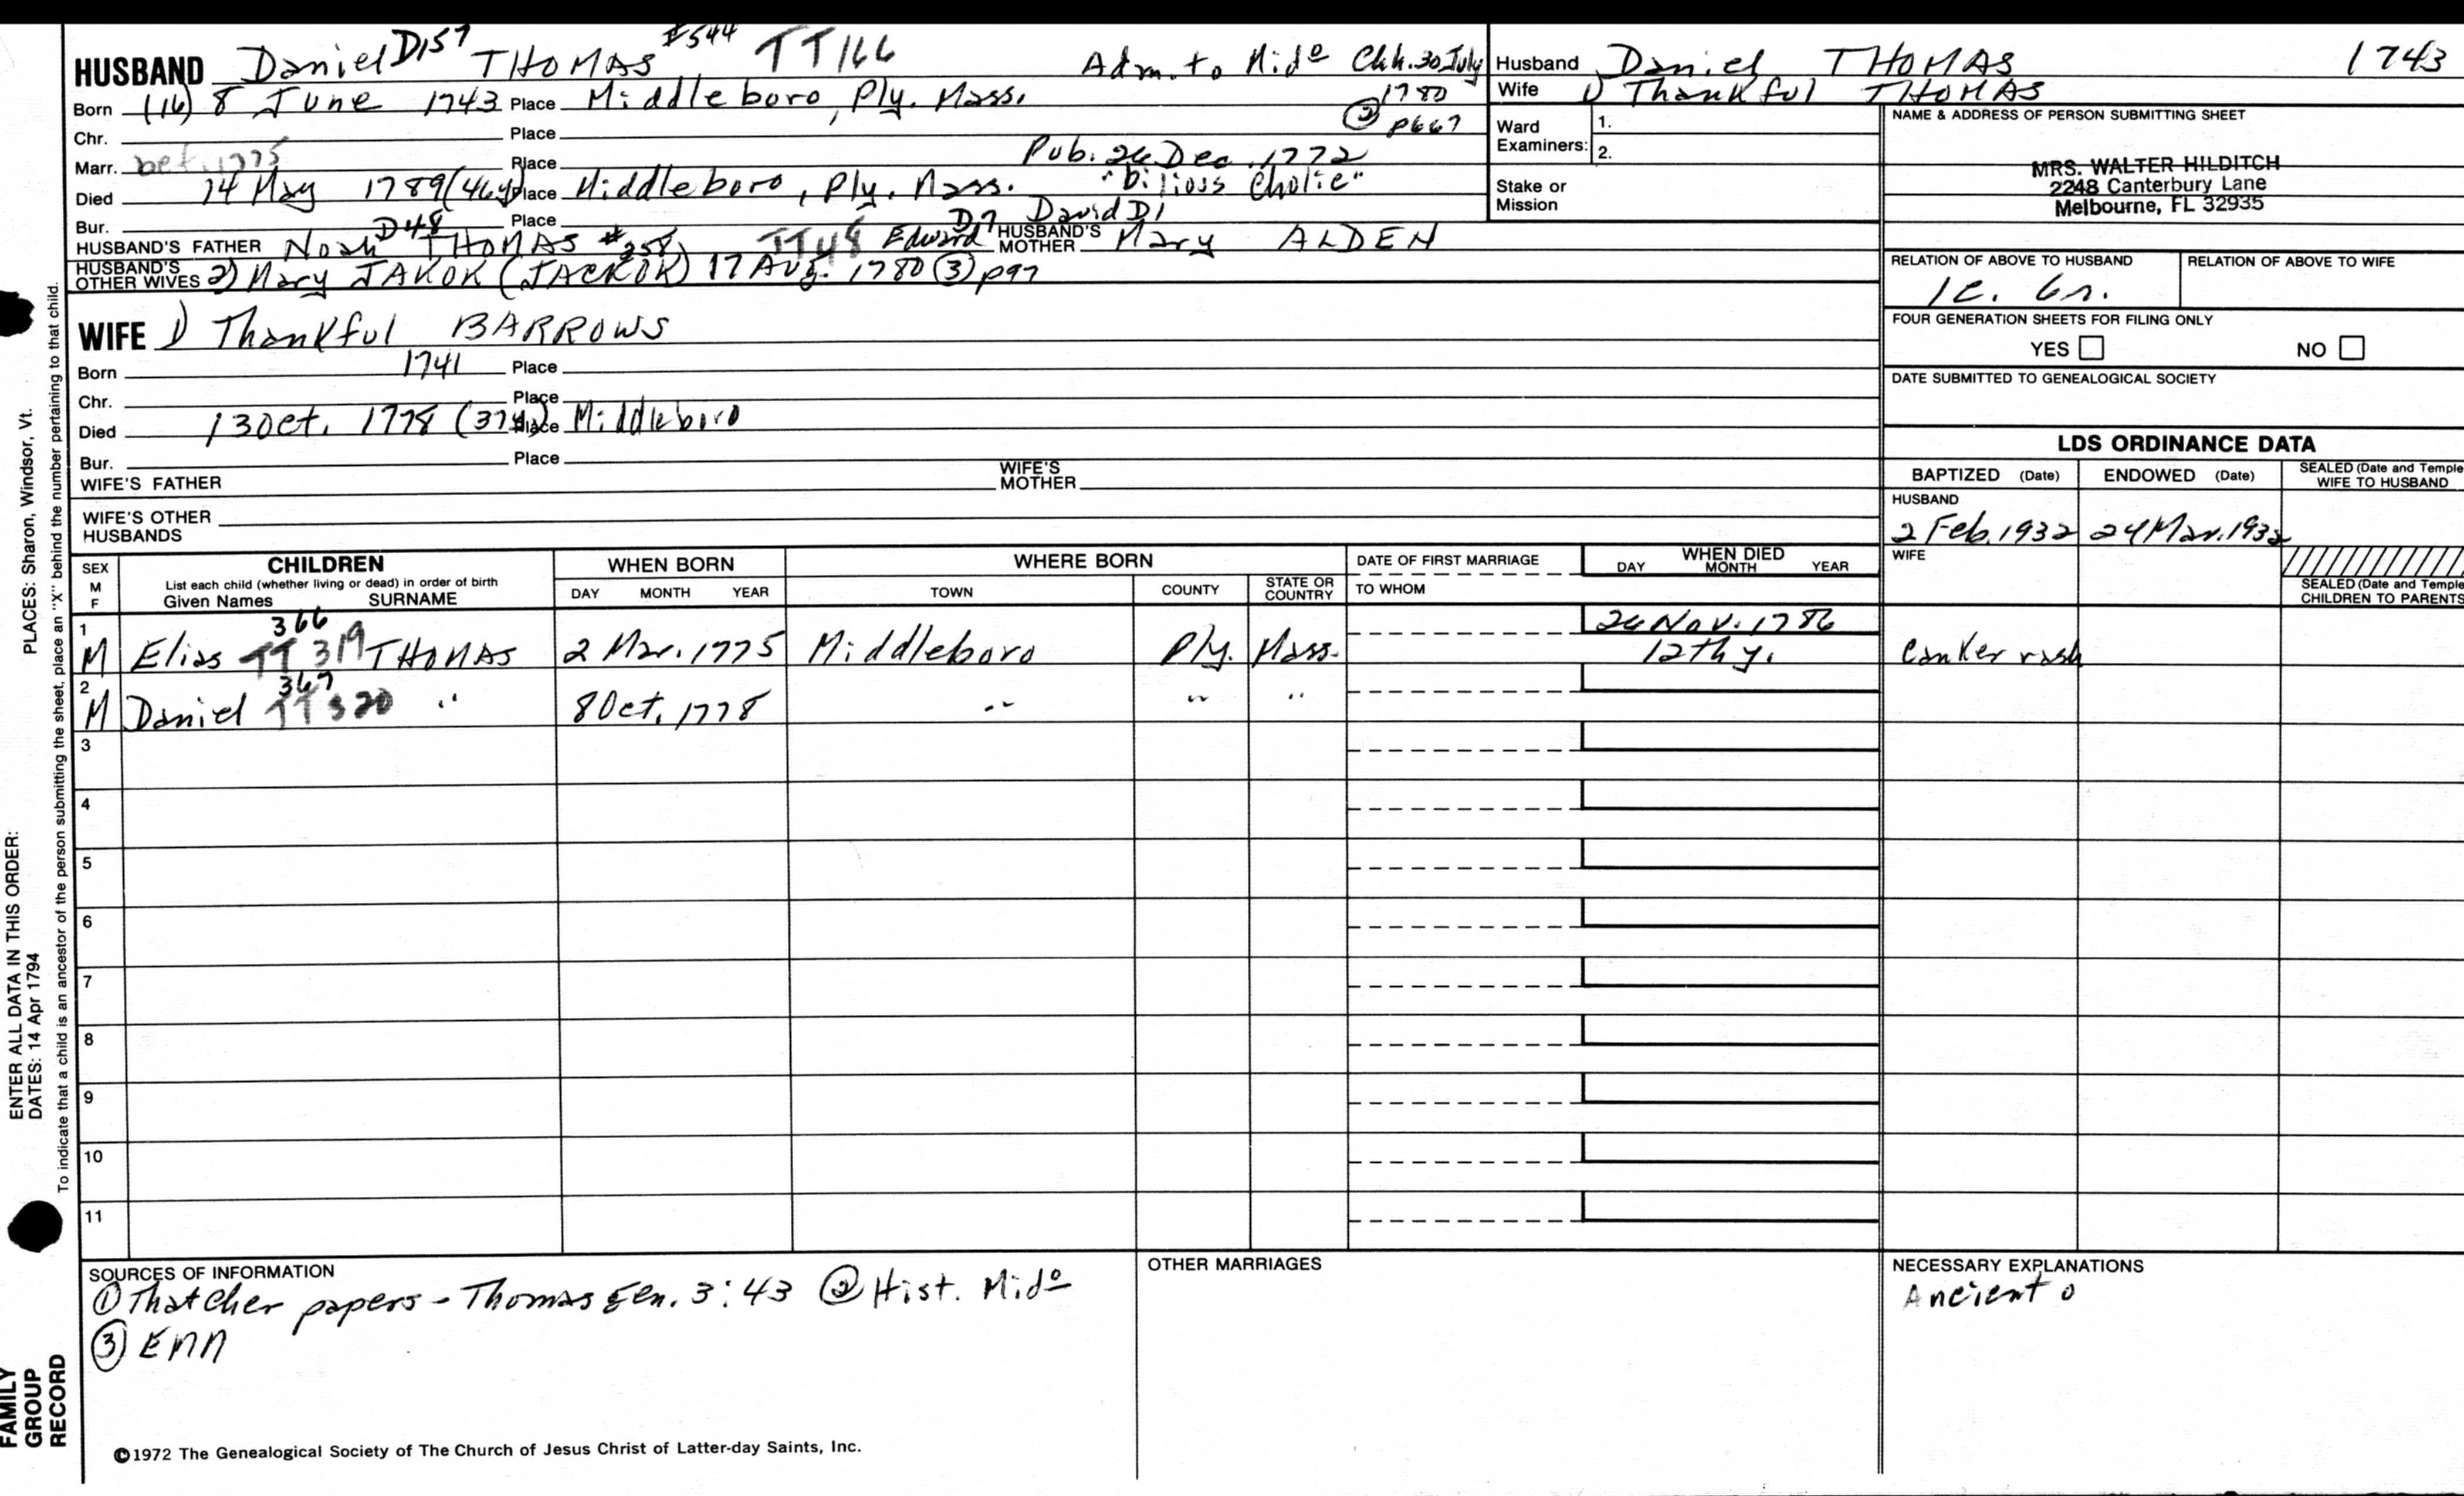 HUSBAND Daniel D157 THOMAS #544 TT166 Adm. to Mido Chh. 30 July 1780
Born (16) 8 June 1743 Place Middleboro, Ply. Mass.
Chr. Place ② p667
Marr. bef. 1775 Place Pub. 26 Dec. 1772
Died 14 May 1789 (46y) Place Middleboro, Ply. Mass. "bilioss Cholic"
Bur. Place
HUSBAND'S FATHER Noah D48 THOMAS #258 TT48 Edward D7 David D1 HUSBAND'S MOTHER Mary ALDEN
HUSBAND'S OTHER WIVES 2) Mary JAKOK (JACKOK) 17 Aug. 1780 ③ p97
WIFE 1) Thankful BARROWS
Born 1741 Place
Chr. Place
Died 13 Oct. 1778 (37y) Place Middleboro
Bur. Place
WIFE'S FATHER WIFE'S MOTHER
WIFE'S OTHER HUSBANDS
Husband Daniel THOMAS 1743
Wife 1) Thankful THOMAS
Ward Examiners: 1.
2.
Stake or Mission
NAME & ADDRESS OF PERSON SUBMITTING SHEET
MRS. WALTER HILDITCH
2248 Canterbury Lane
Melbourne, FL 32935
RELATION OF ABOVE TO HUSBAND RELATION OF ABOVE TO WIFE
1c. 6r.
FOUR GENERATION SHEETS FOR FILING ONLY
YES NO
DATE SUBMITTED TO GENEALOGICAL SOCIETY
LDS ORDINANCE DATA
BAPTIZED (Date) ENDOWED (Date) SEALED (Date and Temple
WIFE TO HUSBAND
HUSBAND
2 Feb. 1932 24 Mar. 1932
WIFE
SEALED (Date and Temple
CHILDREN TO PARENTS
SEX M F CHILDREN WHEN BORN WHERE BORN DATE OF FIRST MARRIAGE WHEN DIED
List each child (whether living or dead) in order of birth
Given Names SURNAME DAY MONTH YEAR TOWN COUNTY STATE OR COUNTRY TO WHOM DAY MONTH YEAR
1 M Elias 366 TT319 THOMAS 2 Mar. 1775 Middleboro Ply. Mass. 26 Nov. 1786 12th y. Canker rash
2 M Daniel 367 TT320 " 8 Oct. 1778 " " "
3
4
5
6
7
8
9
10
11
SOURCES OF INFORMATION
① Thatcher papers - Thomas gen. 3:43 ② Hist. Mido
③ EMM
OTHER MARRIAGES
NECESSARY EXPLANATIONS
Ancient o
©1972 The Genealogical Society of The Church of Jesus Christ of Latter-day Saints, Inc.
FAMILY GROUP RECORD
ENTER ALL DATA IN THIS ORDER:
DATES: 14 Apr 1794
PLACES: Sharon, Windsor, Vt.
To indicate that a child is an ancestor of the person submitting the sheet, place an "X" behind the number pertaining to that child.